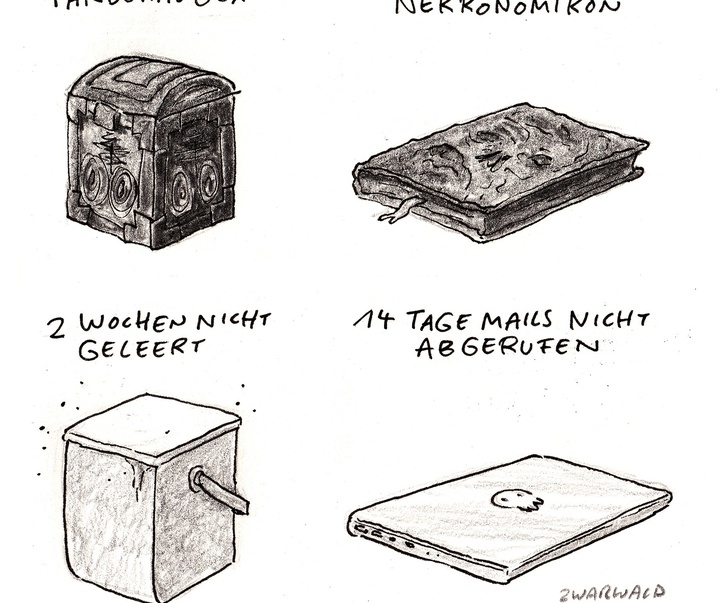 NEKRONOMIKON
2 WOCHEN NICHT
GELEERT
14 TAGE MAILS NICHT
ABGERUFEN
ZWARWALD